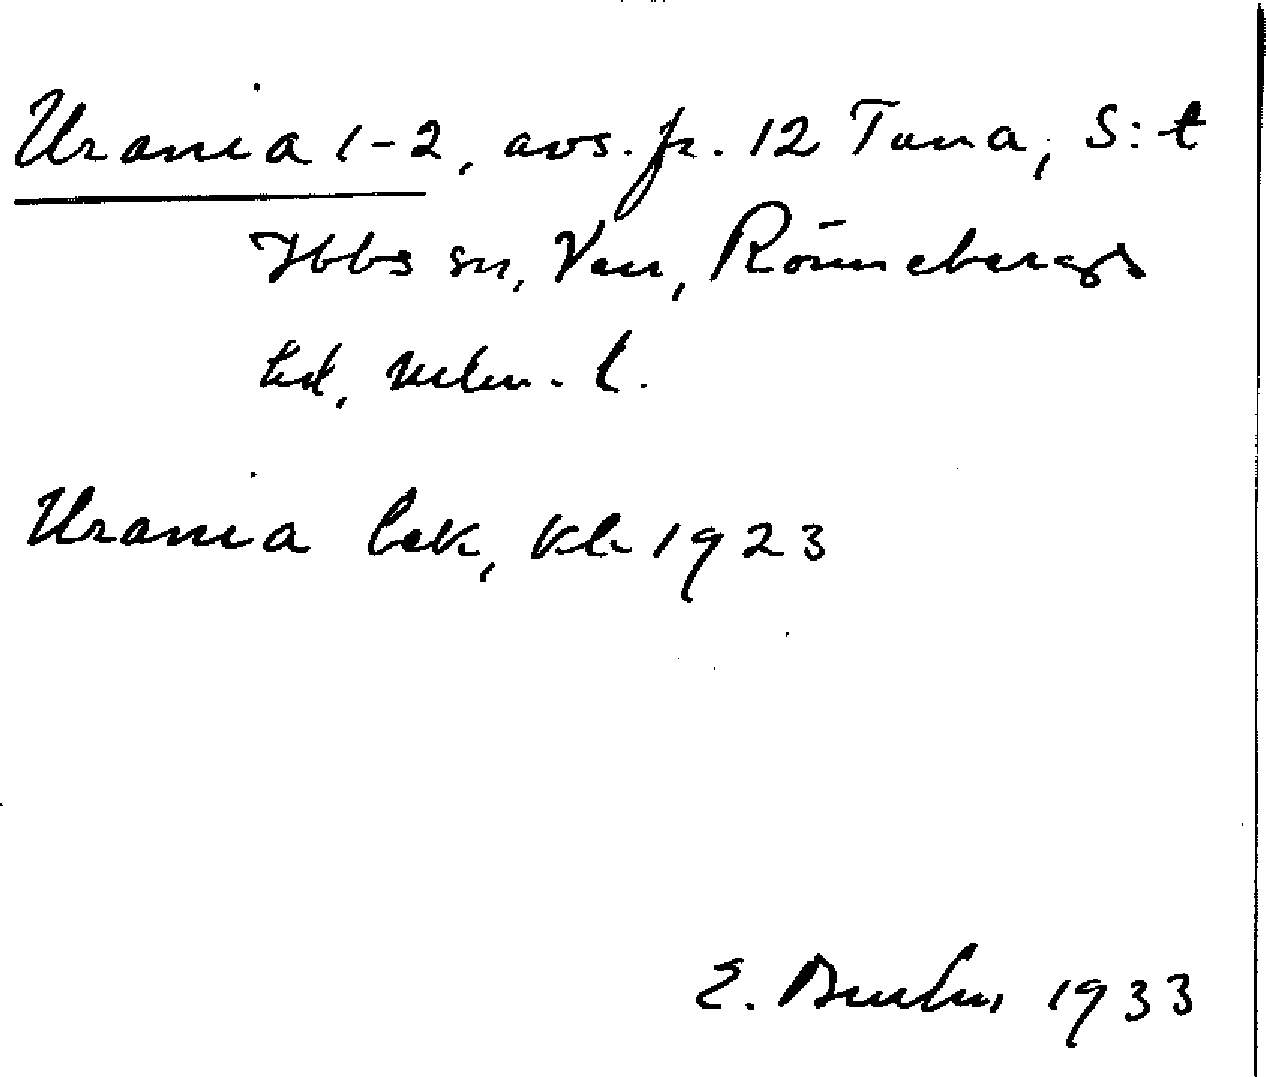 Urania 1-2, avs. fr. 12 Tuna, S:t
Ibbs sn, Ven, Rönnebergs
hd, Mlm. l.
Urania lek, kb 1923
E. 1933